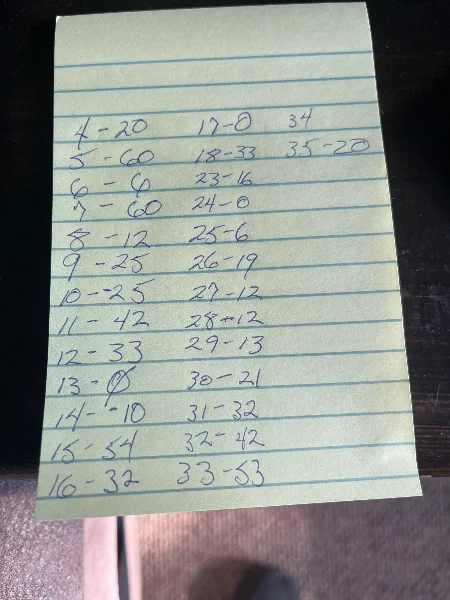 4 - 20
5 - 60
6 - 6
7 - 60
8 - 12
9 - 25
10 - -25
11 - 42
12 - 33
13 - 0
14 - -10
15 - 54
16 - 32
17 - 0
18 - 33
23 - 16
24 - 0
25 - 6
26 - 19
27 - 12
28 - 12
29 - 13
30 - 21
31 - 32
32 - 42
33 - 53
34
35 - 20